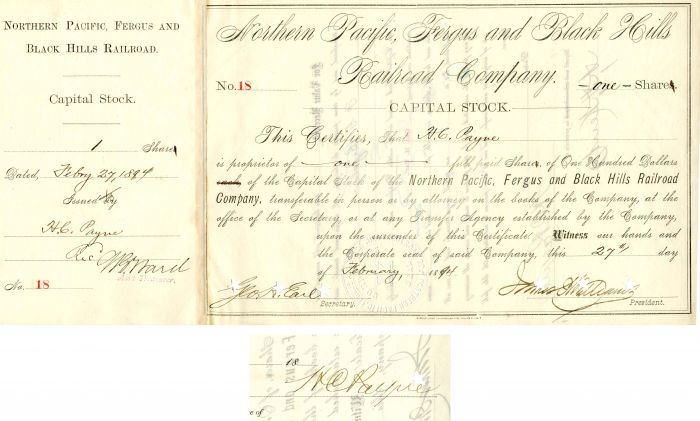 Northern Pacific, Fergus and
Black Hills Railroad.
Capital Stock.
1 Share
Dated, Feby 27, 1894
Issued by
H.C. Payne
Rec'd
No. 18
Northern Pacific, Fergus and Black Hills
Railroad Company.
No. 18
-one- Share
CAPITAL STOCK.
This Certifies, That H.C. Payne
is proprietor of one full paid Share, of One Hundred Dollars
each, of the Capital Stock of the Northern Pacific, Fergus and Black Hills Railroad
Company, transferable in person or by attorney on the books of the Company, at the
office of the Secretary, or at any Transfer Agency established by the Company,
upon the surrender of this Certificate. Witness our hands and
the Corporate seal of said Company, this 27th day
of February, 1894
Geo. H. Earl
Secretary.
President.
18
H C Payne